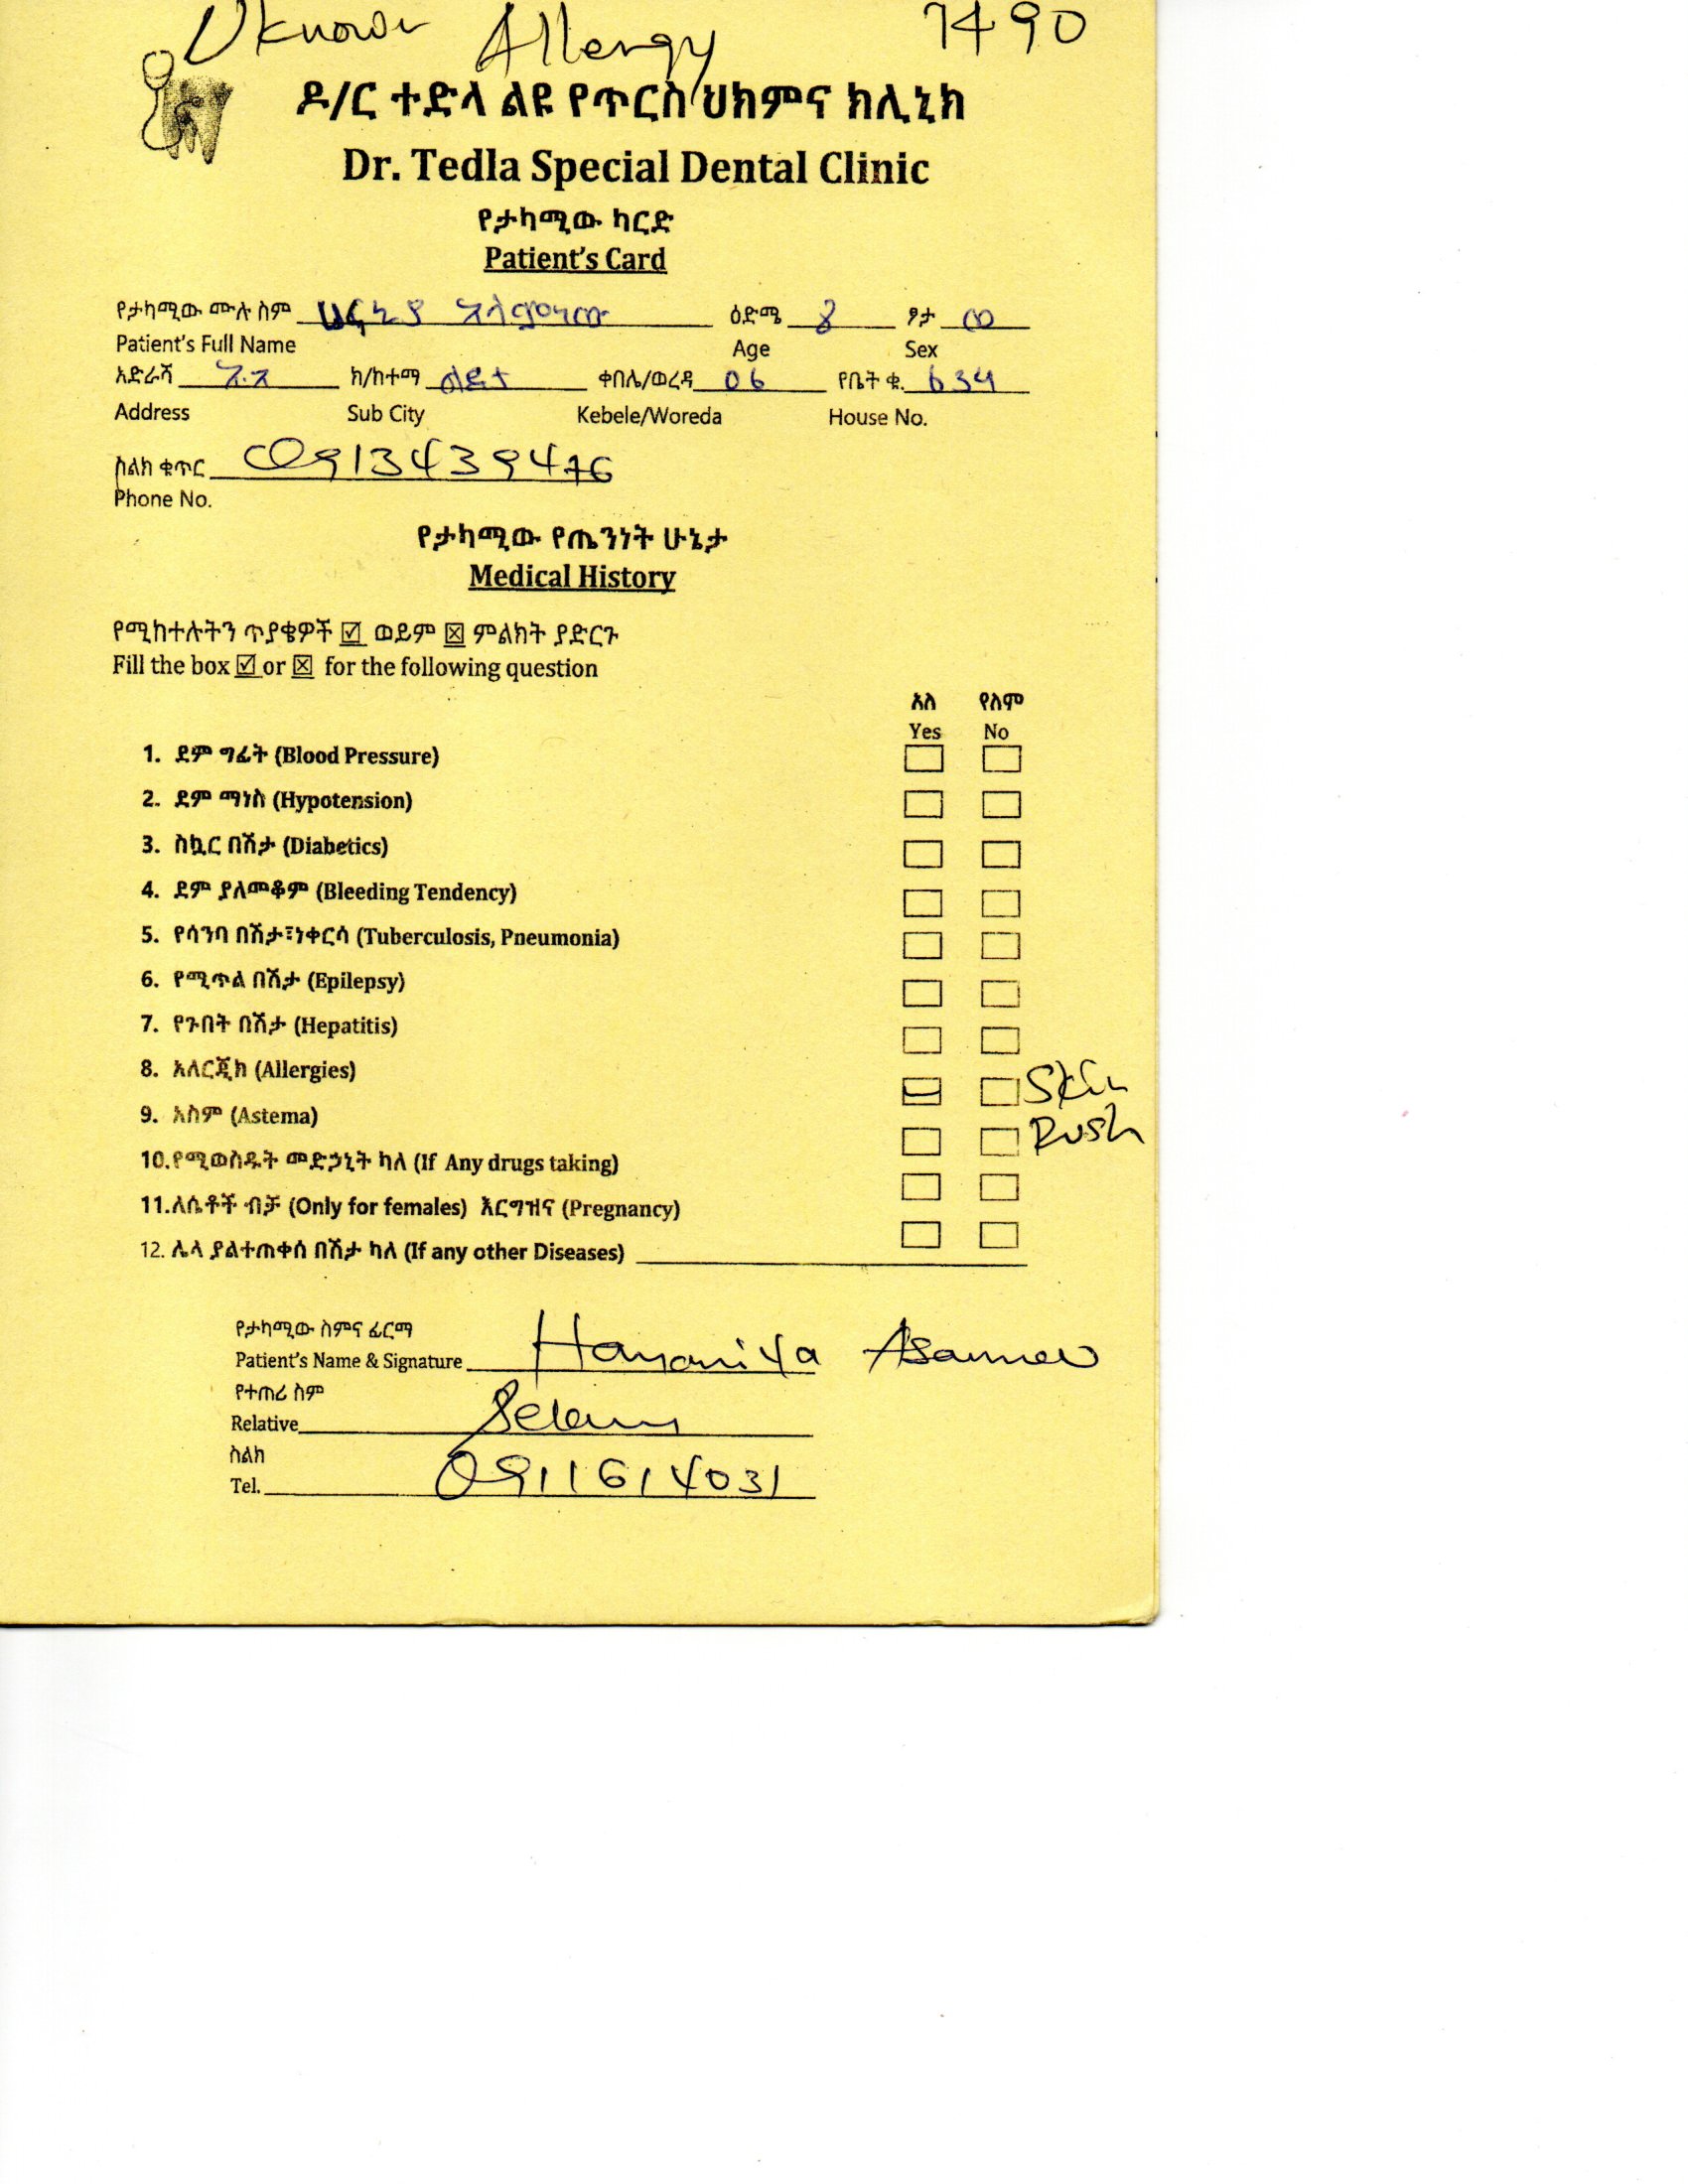 Uknown Allergy 7490
ዶ/ር ተድላ ልዩ የጥርስ ህክምና ክሊኒክ
Dr. Tedla Special Dental Clinic
የታካሚው ካርድ
Patient's Card
የታካሚው ሙሉ ስም ዕድሜ 8 ፆታ ወ
Patient's Full Name Age Sex
አድራሻ አ.አ ክ/ከተማ ልደታ ቀበሌ/ወረዳ 06 የቤት ቁ. 634
Address Sub City Kebele/Woreda House No.
ስልክ ቁጥር 0913439476
Phone No.
የታካሚው የጤንነት ሁኔታ
Medical History
የሚከተሉትን ጥያቄዎች ☑ ወይም ☒ ምልክት ያድርጉ
Fill the box ☑ or ☒ for the following question
አለ የለም
Yes No
1. ደም ግፊት (Blood Pressure)
2. ደም ማነስ (Hypotension)
3. ስኳር በሽታ (Diabetics)
4. ደም ያለመቆም (Bleeding Tendency)
5. የሳንባ በሽታ፣ነቀርሳ (Tuberculosis, Pneumonia)
6. የሚጥል በሽታ (Epilepsy)
7. የጉበት በሽታ (Hepatitis)
8. አለርጂክ (Allergies) Skin
9. አስም (Astema) Rush
10.የሚወስዱት መድኃኒት ካለ (If Any drugs taking)
11.ለሴቶች ብቻ (Only for females) እርግዝና (Pregnancy)
12. ሌላ ያልተጠቀሰ በሽታ ካለ (If any other Diseases)
የታካሚው ስምና ፊርማ
Patient's Name & Signature Hananiya
የተጠሪ ስም
Relative Selam
ስልክ
Tel. 0911614031